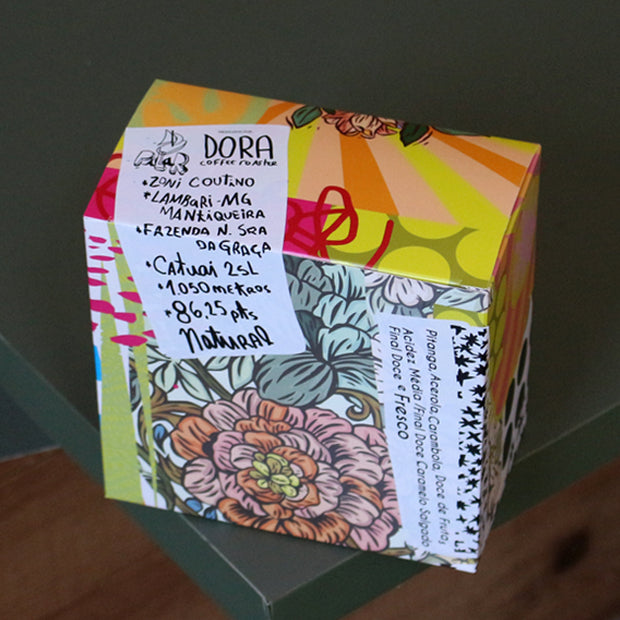 PILAR
DORA
COFFEE ROASTER
•ZONI COUTINO
•LAMBARI-MG
MANTIQUEIRA
•FAZENDA N. SRA
DA GRAÇA
•CATUAI 2SL
•1.050 METROS
•86.25 pts
NATURAL
Pitanga, Acerola, Carambola, Doce de Frutas
Acidez Média /Final Doce Caramelo Salgado
Final Doce e Fresco